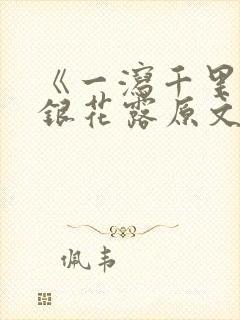 《一泻千里
银花露原文
佩韦